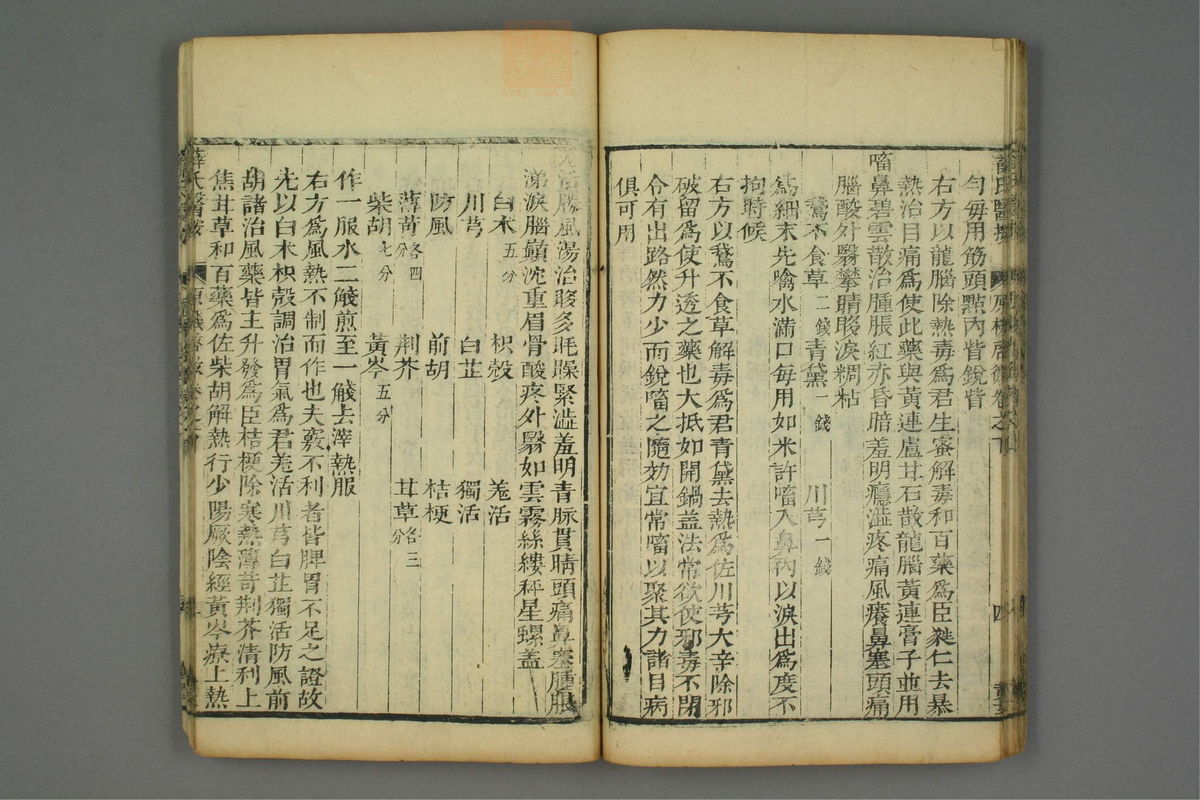 薛氏醫按
原機啓微卷之下
四
勻每用筋頭點內眥銳眥
右方以龍腦除熱毒爲君生蜜解毒和百藥爲臣蕤仁去暴
熱治目痛爲使此藥與黃連盧茸石散龍腦黃連膏子並用
㗜鼻碧雲散治腫脹紅赤昏暗羞明癮澁疼痛風癢鼻塞頭痛
腦酸外翳攀睛眵淚稠粘
鵞不食草二錢 青黛一錢 川芎一錢
爲細末先噙水滿口每用如米許㗜入鼻內以淚出爲度不
拘時候
右方以鵞不食草解毒爲君青黛去熱爲佐川芎大辛除邪
破留爲使升透之藥也大抵如開鍋蓋法常欲使邪毒不閉
令有出路然力少而銳㗜之隨効宜常㗜以聚其力諸目病
俱可用
羌活勝風湯治眵多眊矂緊澁羞明青脉貫睛頭痛鼻塞腫脹
涕淚腦巔沈重眉骨酸疼外翳如雲霧絲縷秤星螺蓋
白朮五分 枳殼 羌活
川芎 白芷 獨活
防風 前胡 桔梗
薄荷各四分 荆芥 甘草各三分
柴胡七分 黃芩五分
作一服水二醆煎至一醆去滓熱服
右方爲風熱不制而作也夫竅不利者皆脾胃不足之證故
先以白朮枳殼調治胃氣爲君羌活川芎白芷獨活防風前
胡諸治風藥皆主升發爲臣桔梗除寒熱薄荷荆芥清利上
焦甘草和百藥爲佐柴胡解熱行少陽厥陰經黃芩療上熱
薛氏醫按
原機啓微卷之下